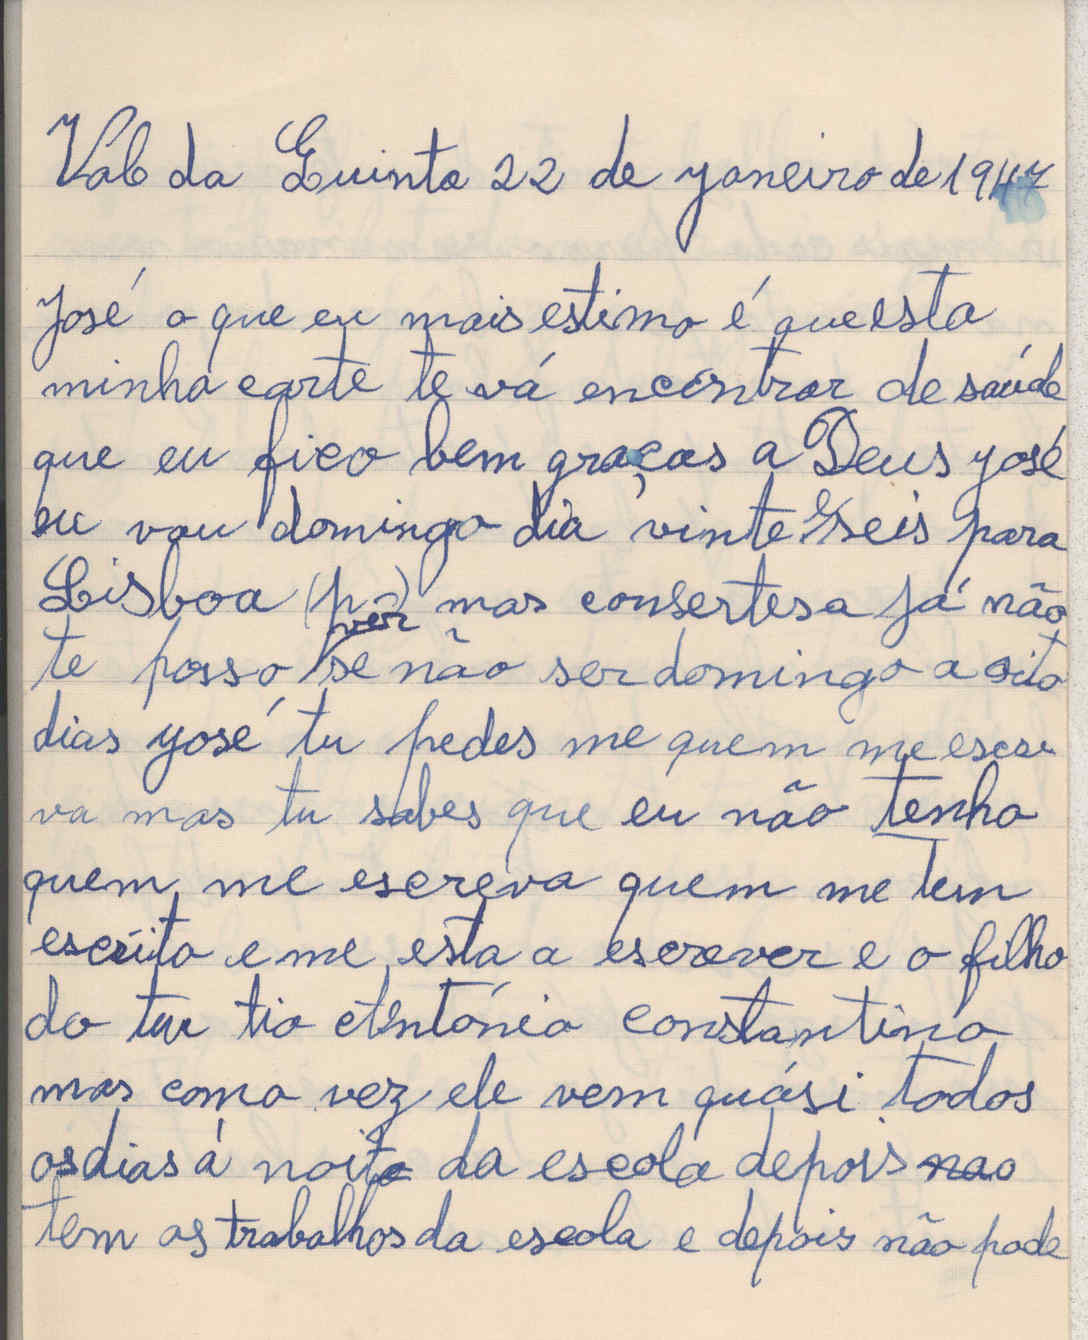 Val da Quinta 22 de janeiro de 1947
José o que eu mais estimo é que esta
minha carte te vá encontrar de saúde
que eu fico bem graças a Deus josé
eu vou domingo dia vinte e seis para
Lisboa (p.a) mas consertesa já não
te posso ver se não ser domingo a oito
dias josé tu pedes me quem me escre
va mas tu sabes que eu não tenho
quem me escreva quem me tem
escrito e me esta a escrever e o filho
do teu tio António Constantino
mas como vez ele vem quási todos
os dias á noite da escola depois nao
tem os trabalhos da escola e depois não pode